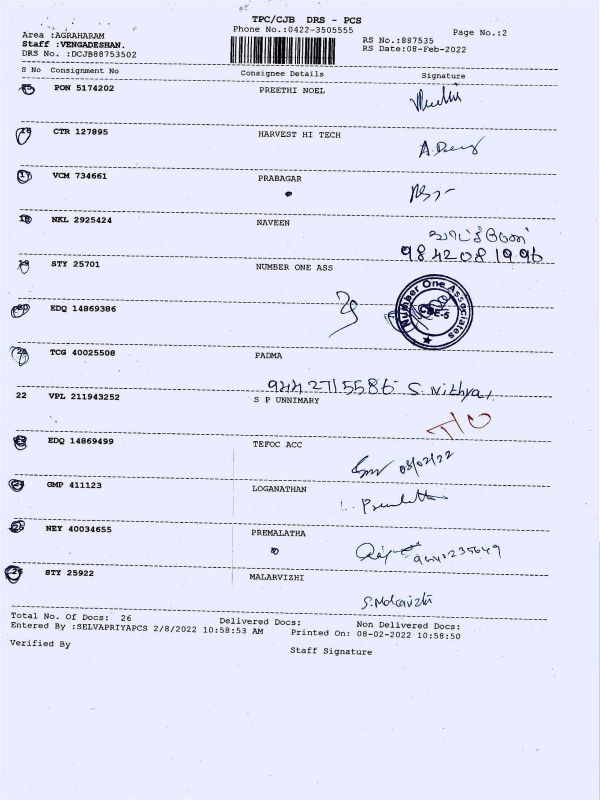 TPC/CJB DRS - PCS
Phone No.:0422-3505555
Page No.:2
Area :AGRAHARAM
Staff :VENGADESHAN.
DRS No. :DCJB88753502
RS No.:887535
RS Date:08-Feb-2022
S No Consignment No Consignee Details Signature
PON 5174202 PREETHI NOEL
CTR 127895 HARVEST HI TECH
17 VCM 734661 PRABAGAR
18 NKL 2925424 NAVEEN
9842081996
19 STY 25701 NUMBER ONE ASS
Number One Associates
CBE-5
EDQ 14869386
TCG 40025508 PADMA
9442715586 S. Nithya
22 VPL 211943252 S P UNNIMARY
EDQ 14869499 TEFOC ACC
08/02/22
GMP 411123 LOGANATHAN
NEY 40034655 PREMALATHA
STY 25922 MALARVIZHI
S. Malarvizhi
Total No. Of Docs: 26 Delivered Docs: Non Delivered Docs:
Entered By :SELVAPRIYAPCS 2/8/2022 10:58:53 AM Printed On: 08-02-2022 10:58:50
Verified By Staff Signature